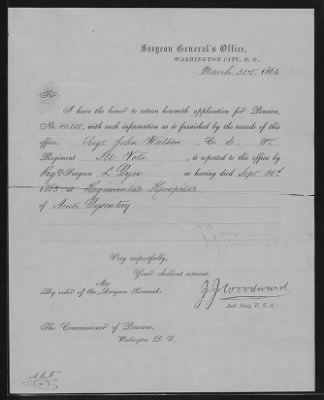 Surgeon General's Office,
WASHINGTON CITY, D. C.,
March 31st, 1864
Sir:
I have the honor to return herewith application for Pension,
No. with such information as is furnished by the records of this
office. Sergt John Watson, Co. C.
Regiment Ill. Vols, is reported to this office by
Regt'l Surgeon L. Dyer as having died Sept 26th
1863, at Regimental Hospital
of Acute Dysentery
Very respectfully,
Your obedient servant,
By order of the Surgeon General:
J J Woodward
Ast. Surg. U. S. A.
The Commissioner of Pensions,
Washington, D. C.